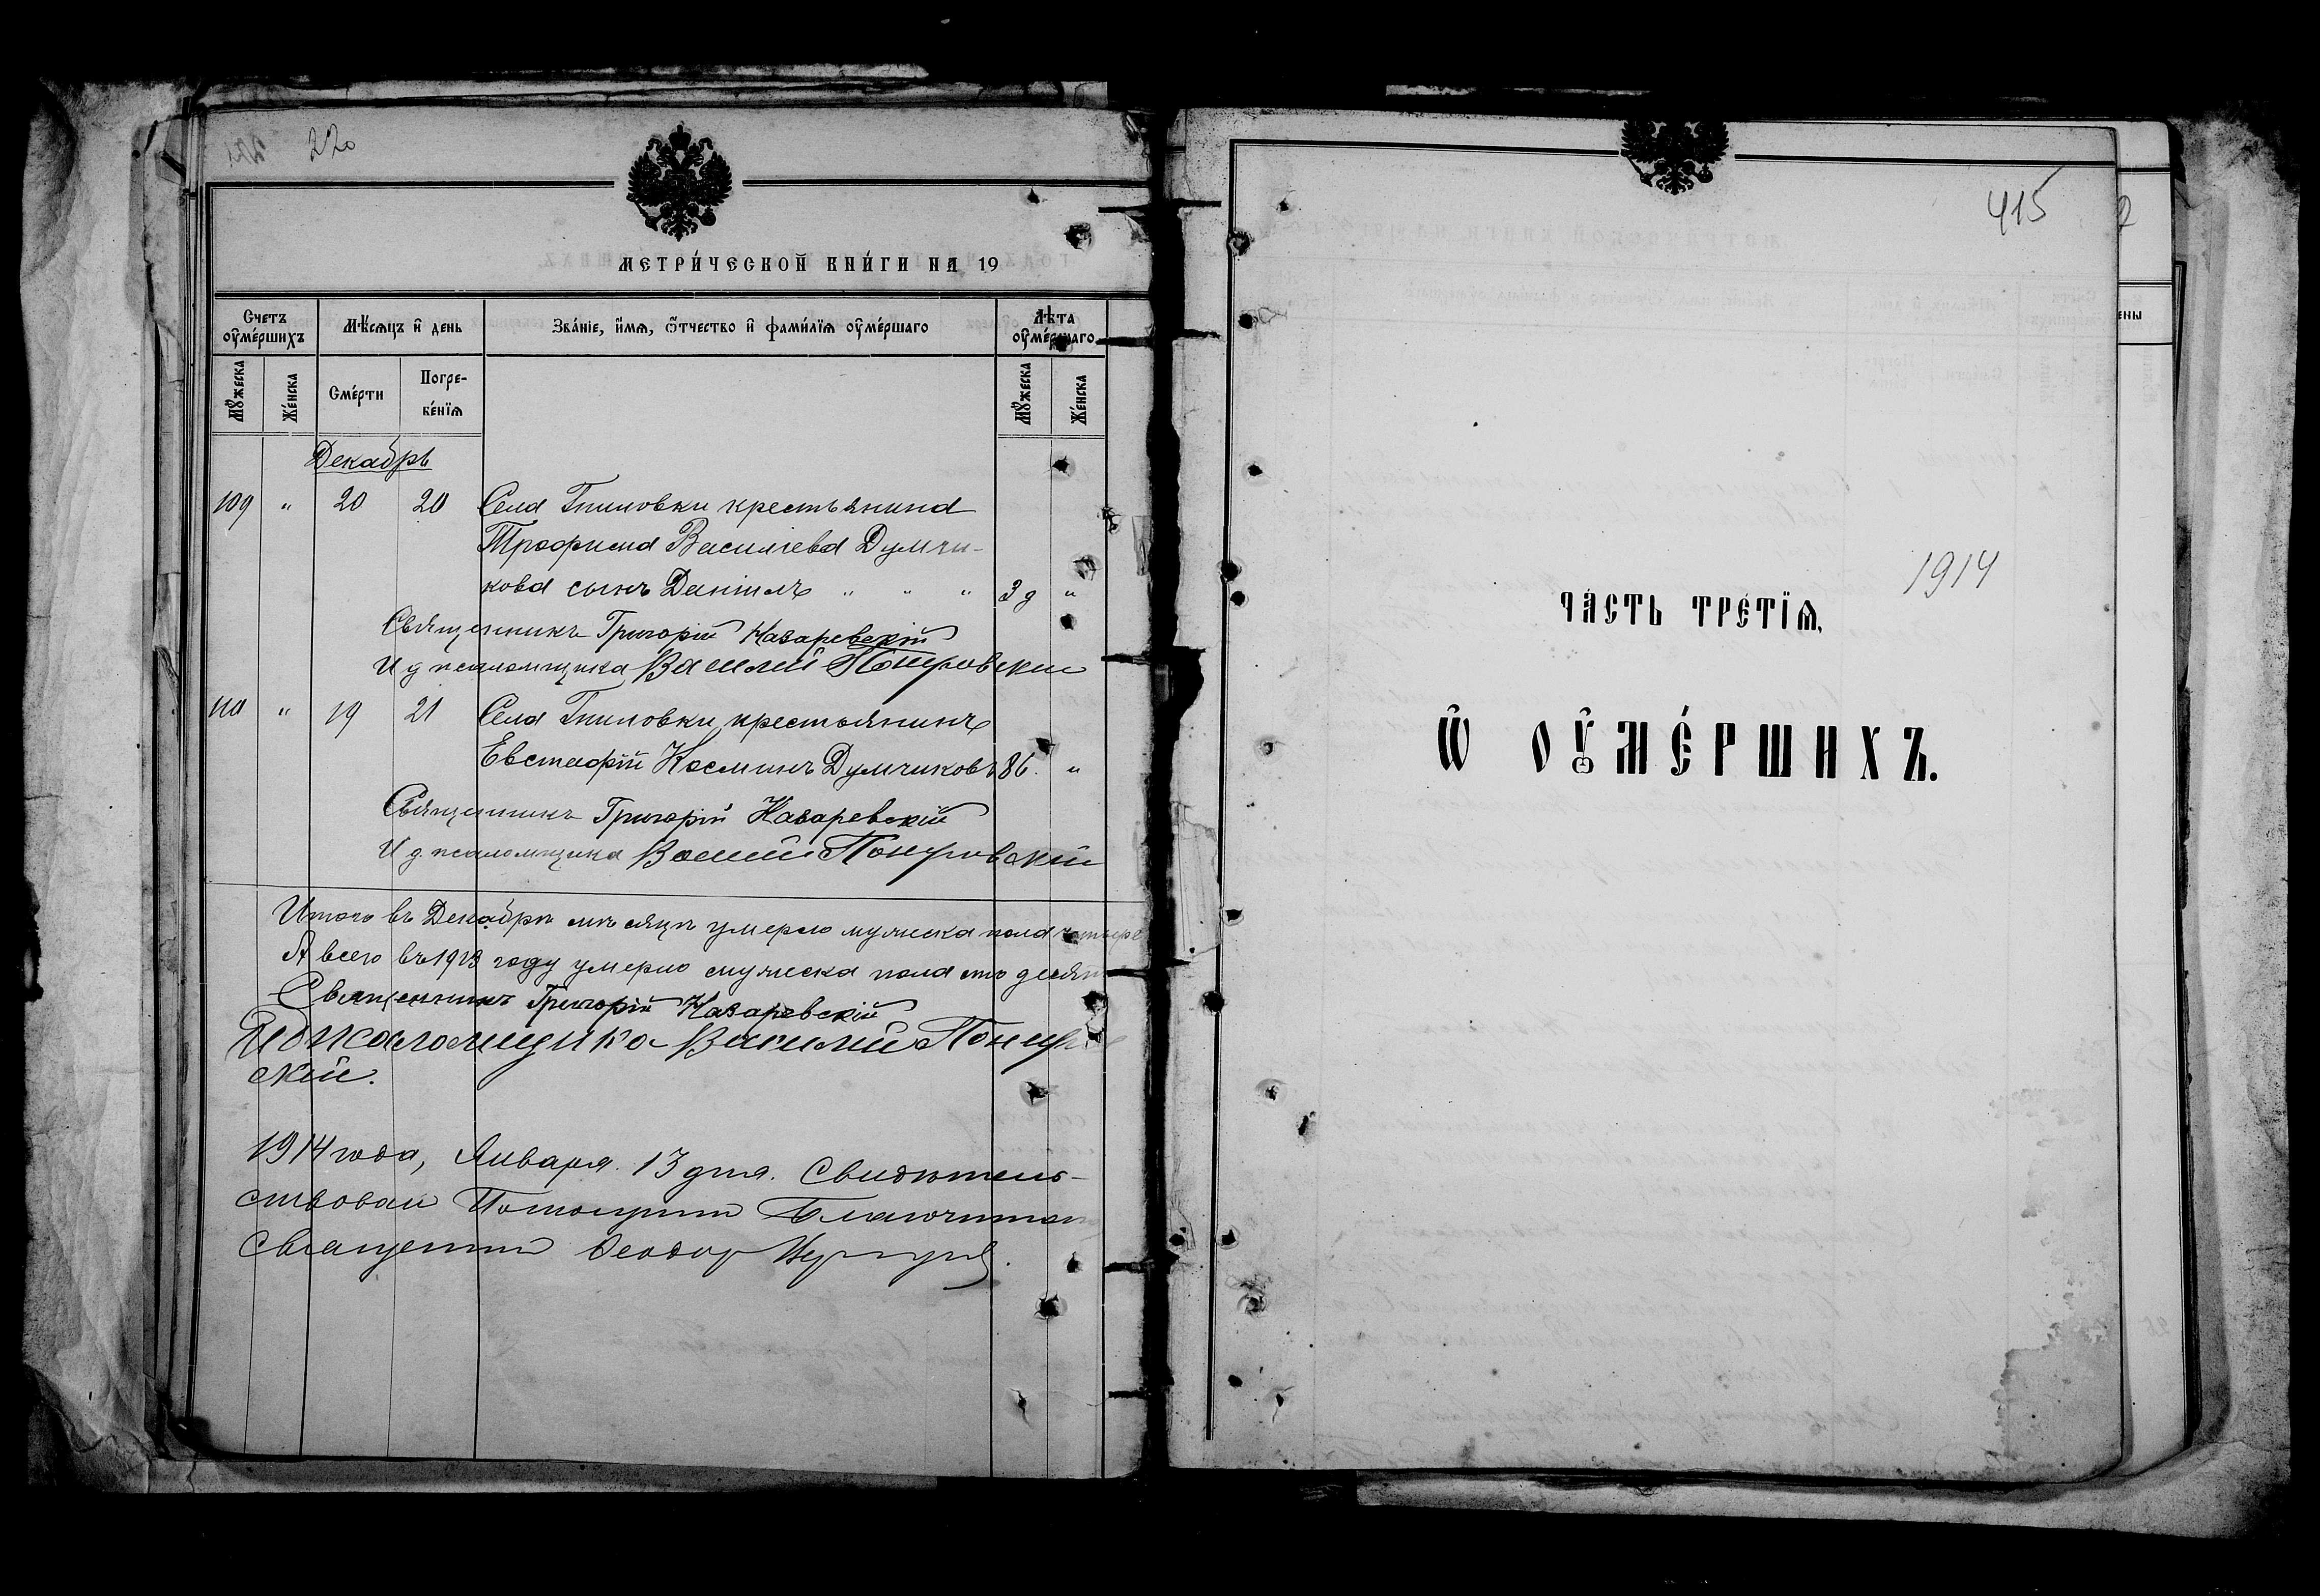 220
МЕТРИ́ЧЕСКОЙ КНИ́ГИ НА 19
Счетъ оу҆ме́ршихъ
Мѣ́сяцъ и҆ день
Зва́ніе, и҆́мѧ, ѻ҆́тчество и҆ фами́лїѧ оу҆ме́ршаго
Лѣ́та оу҆ме́ршаго
Мꙋ́жеска
Же́нска
Сме́рти
Погребе́нїѧ
Мꙋ́жеска
Же́нска
Декабрь
109 " 20 20 Села Гниловки крестьянина
Трофима Василіева Думчи-
кова сынъ Даніилъ " " " 3 д "
Священникъ Григорій Назаревскій
И д псаломщика Василій Понировскій
110 " 19 21 Села Гниловки крестьянинъ
Евстафій Косминъ Думчиковъ 86. "
Священникъ Григорій Назаревскій
И д. псаломщика Василій Понировскій
Итого въ Декабрѣ мѣсяцѣ умерло мужеска пола четыре
А всего въ 1913 году умерло мужеска пола сто десять
Священникъ Григорій Назаревскій
И д псаломщика Василій Пониров
скій.
1914 года, Января 13 дня. Свидѣтель-
ствовалъ Благочинный
Священникъ Ѳеодоръ
415
1914
ЧА́СТЬ ТРЕ́ТЇѦ,
Ѽ ОУ҆МЕ́РШИХЪ.
ены